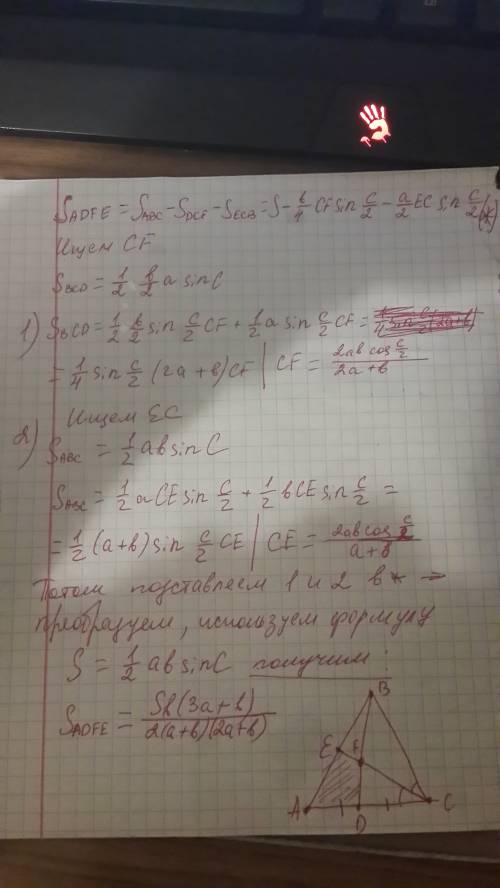 S_ADFE = S_ABC - S_DCF - S_ECB = S - b/4 CF sin c/2 - a/2 EC sin c/2 (*)
Ищем CF
S_BCD = 1/2 b/2 a sin C
1) S_BCD = 1/2 b/2 sin c/2 CF + 1/2 a sin c/2 CF =
= 1/4 sin c/2 (2a + b) CF | CF = 2ab cos c/2 / 2a + b
Ищем EC
2) S_ABC = 1/2 ab sin C
S_ABC = 1/2 a CE sin c/2 + 1/2 b CE sin c/2 =
= 1/2 (a+b) sin c/2 CE | CE = 2ab cos c/2 / a + b
Потом подставляем 1 и 2 в * →
преобразуем, используем формулу
S = 1/2 ab sin C получим:
S_ADFE = Sb(3a+b) / 2(a+b)(2a+b)
B
E F
A D C